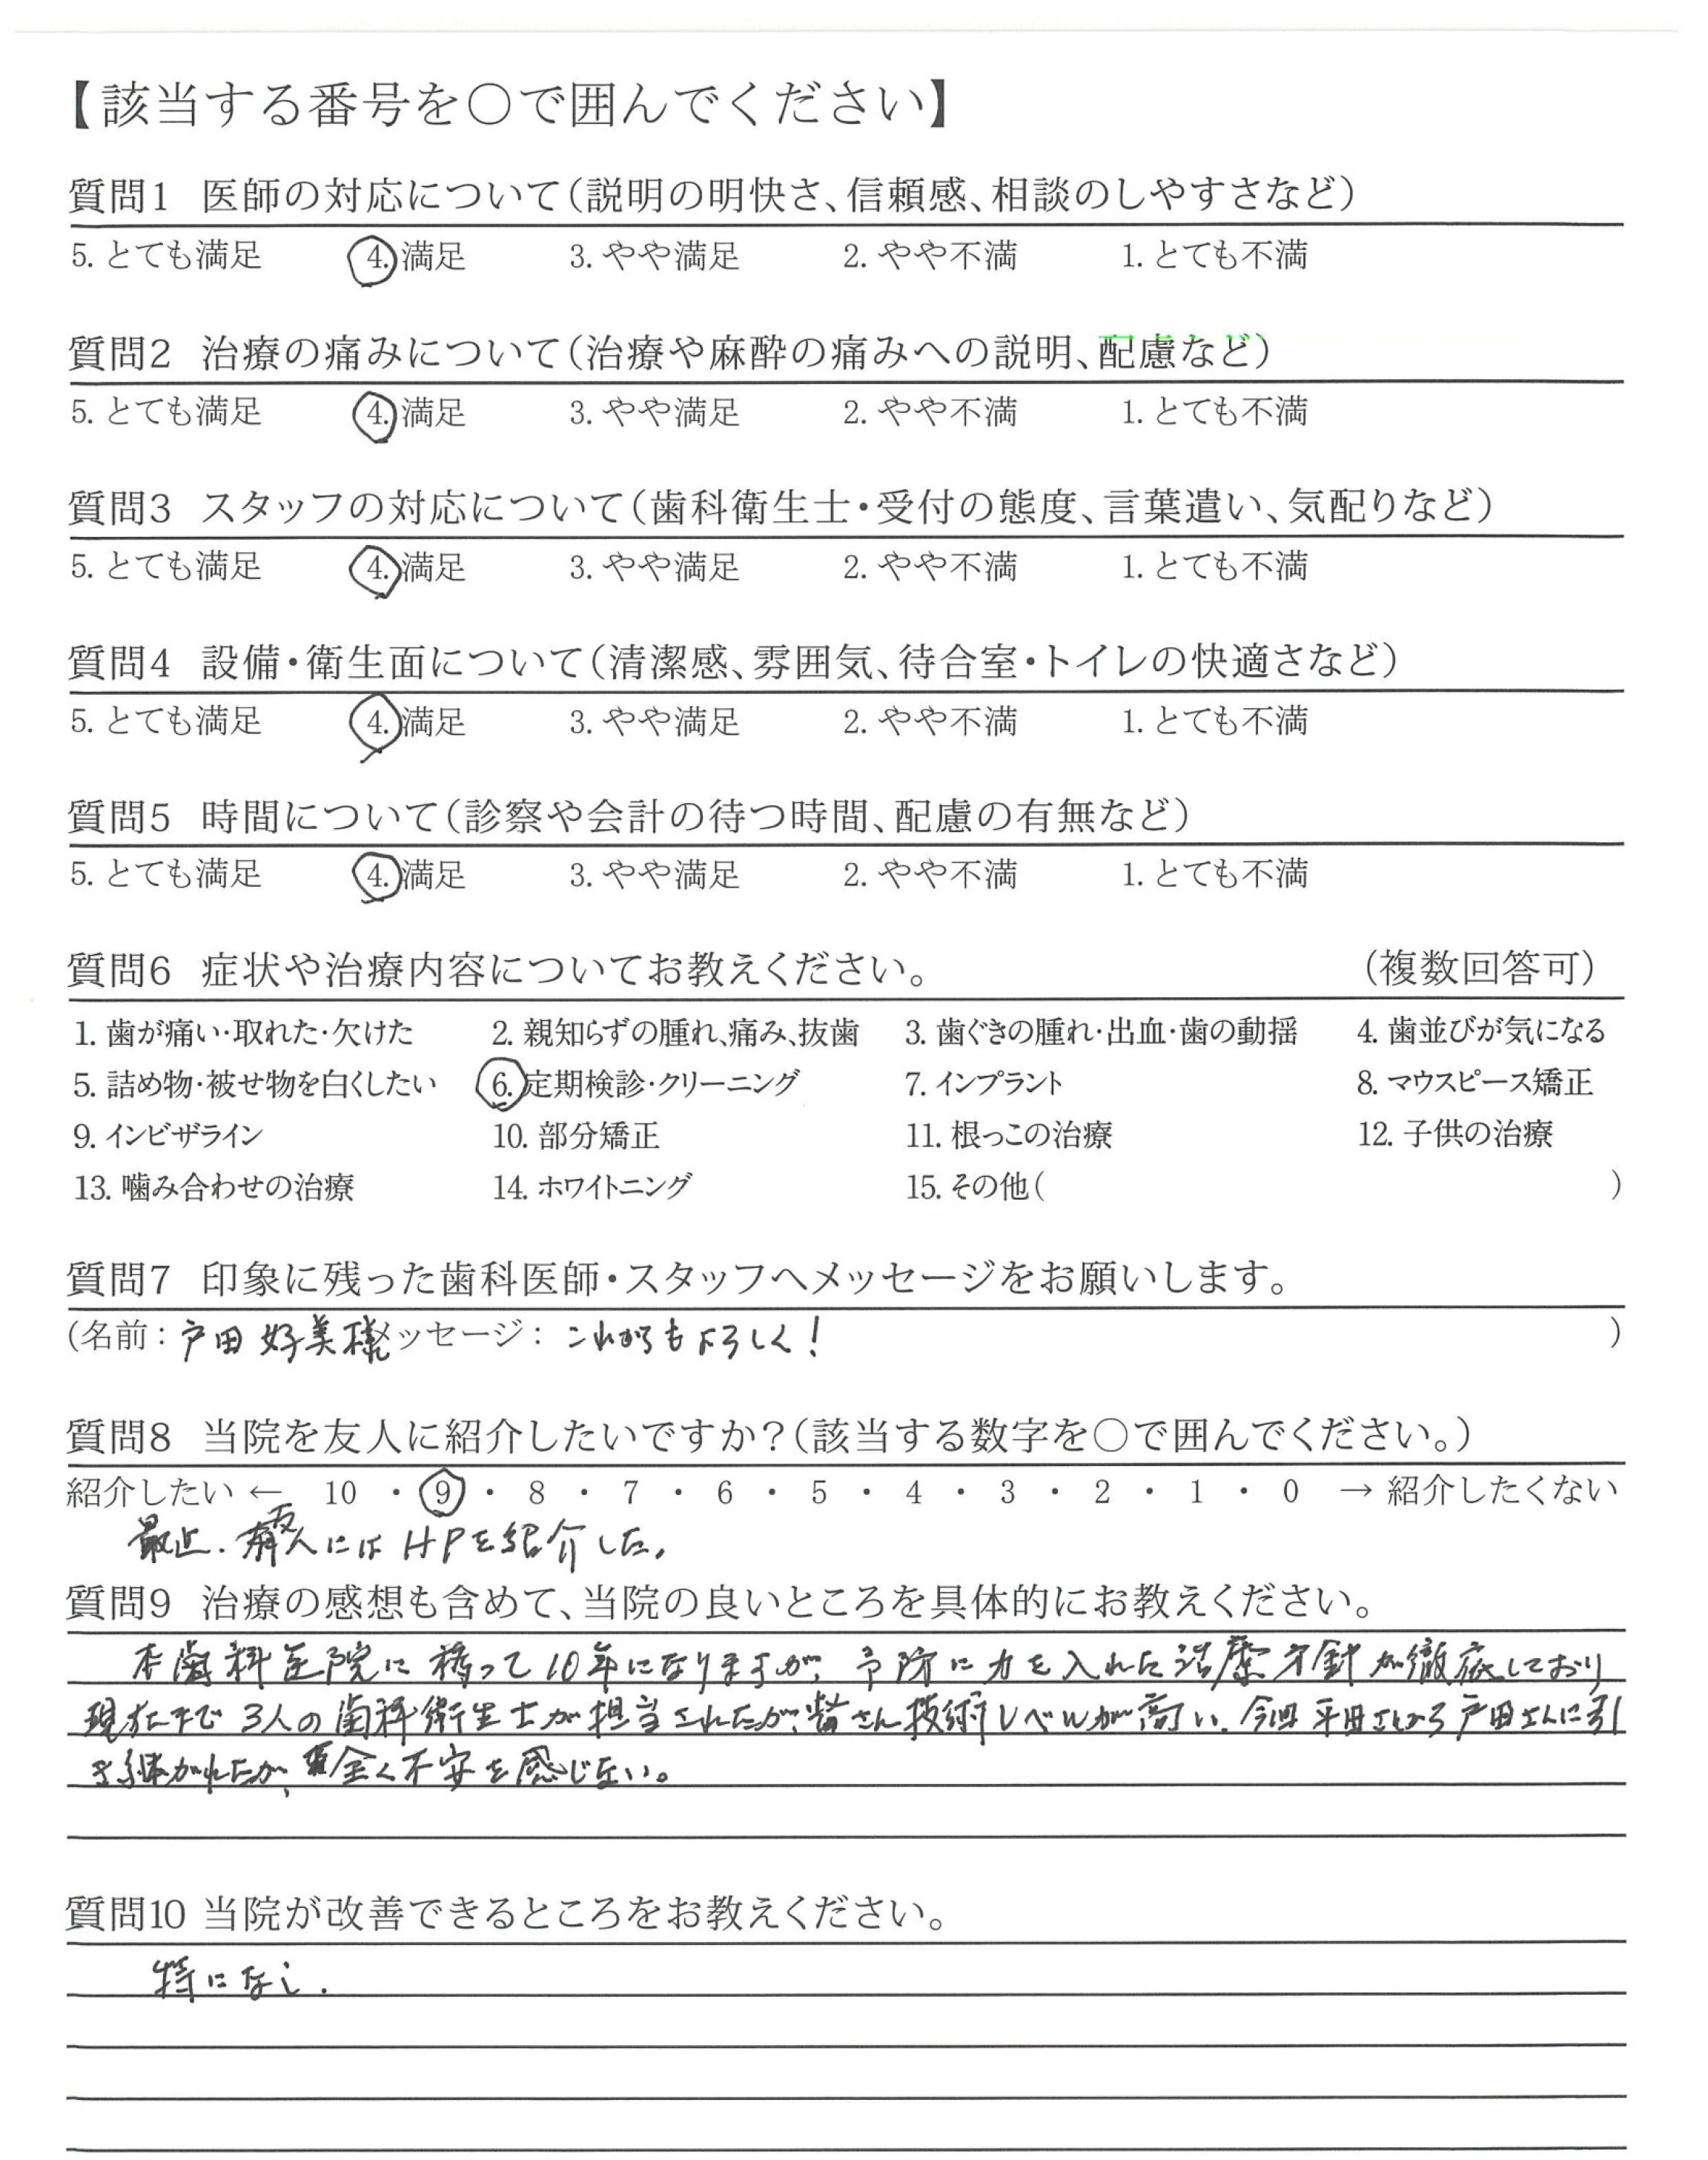 【該当する番号を○で囲んでください】
質問1 医師の対応について(説明の明快さ、信頼感、相談のしやすさなど)
5. とても満足 4. 満足 3. やや満足 2. やや不満 1. とても不満
質問2 治療の痛みについて(治療や麻酔の痛みへの説明、配慮など)
5. とても満足 4. 満足 3. やや満足 2. やや不満 1. とても不満
質問3 スタッフの対応について(歯科衛生士・受付の態度、言葉遣い、気配りなど)
5. とても満足 4. 満足 3. やや満足 2. やや不満 1. とても不満
質問4 設備・衛生面について(清潔感、雰囲気、待合室・トイレの快適さなど)
5. とても満足 4. 満足 3. やや満足 2. やや不満 1. とても不満
質問5 時間について(診察や会計の待つ時間、配慮の有無など)
5. とても満足 4. 満足 3. やや満足 2. やや不満 1. とても不満
質問6 症状や治療内容についてお教えください。 (複数回答可)
1. 歯が痛い・取れた・欠けた 2. 親知らずの腫れ、痛み、抜歯 3. 歯ぐきの腫れ・出血・歯の動揺 4. 歯並びが気になる
5. 詰め物・被せ物を白くしたい 6. 定期検診・クリーニング 7. インプラント 8. マウスピース矯正
9. インビザライン 10. 部分矯正 11. 根っこの治療 12. 子供の治療
13. 噛み合わせの治療 14. ホワイトニング 15. その他( )
質問7 印象に残った歯科医師・スタッフへメッセージをお願いします。
(名前: 戸田 好美様 メッセージ: これからもよろしく! )
質問8 当院を友人に紹介したいですか?(該当する数字を○で囲んでください。)
紹介したい ← 10 ・ 9 ・ 8 ・ 7 ・ 6 ・ 5 ・ 4 ・ 3 ・ 2 ・ 1 ・ 0 → 紹介したくない
最近、友人にはHPを紹介した。
質問9 治療の感想も含めて、当院の良いところを具体的にお教えください。
本歯科医院に移って10年になりますが、予防に力を入れた治療方針が徹底しており
現在まで3人の歯科衛生士が担当されたが、皆さん技術レベルが高い。今回平田さんから戸田さんに引
き継がれたが、全く不安を感じない。
質問10 当院が改善できるところをお教えください。
特になし.